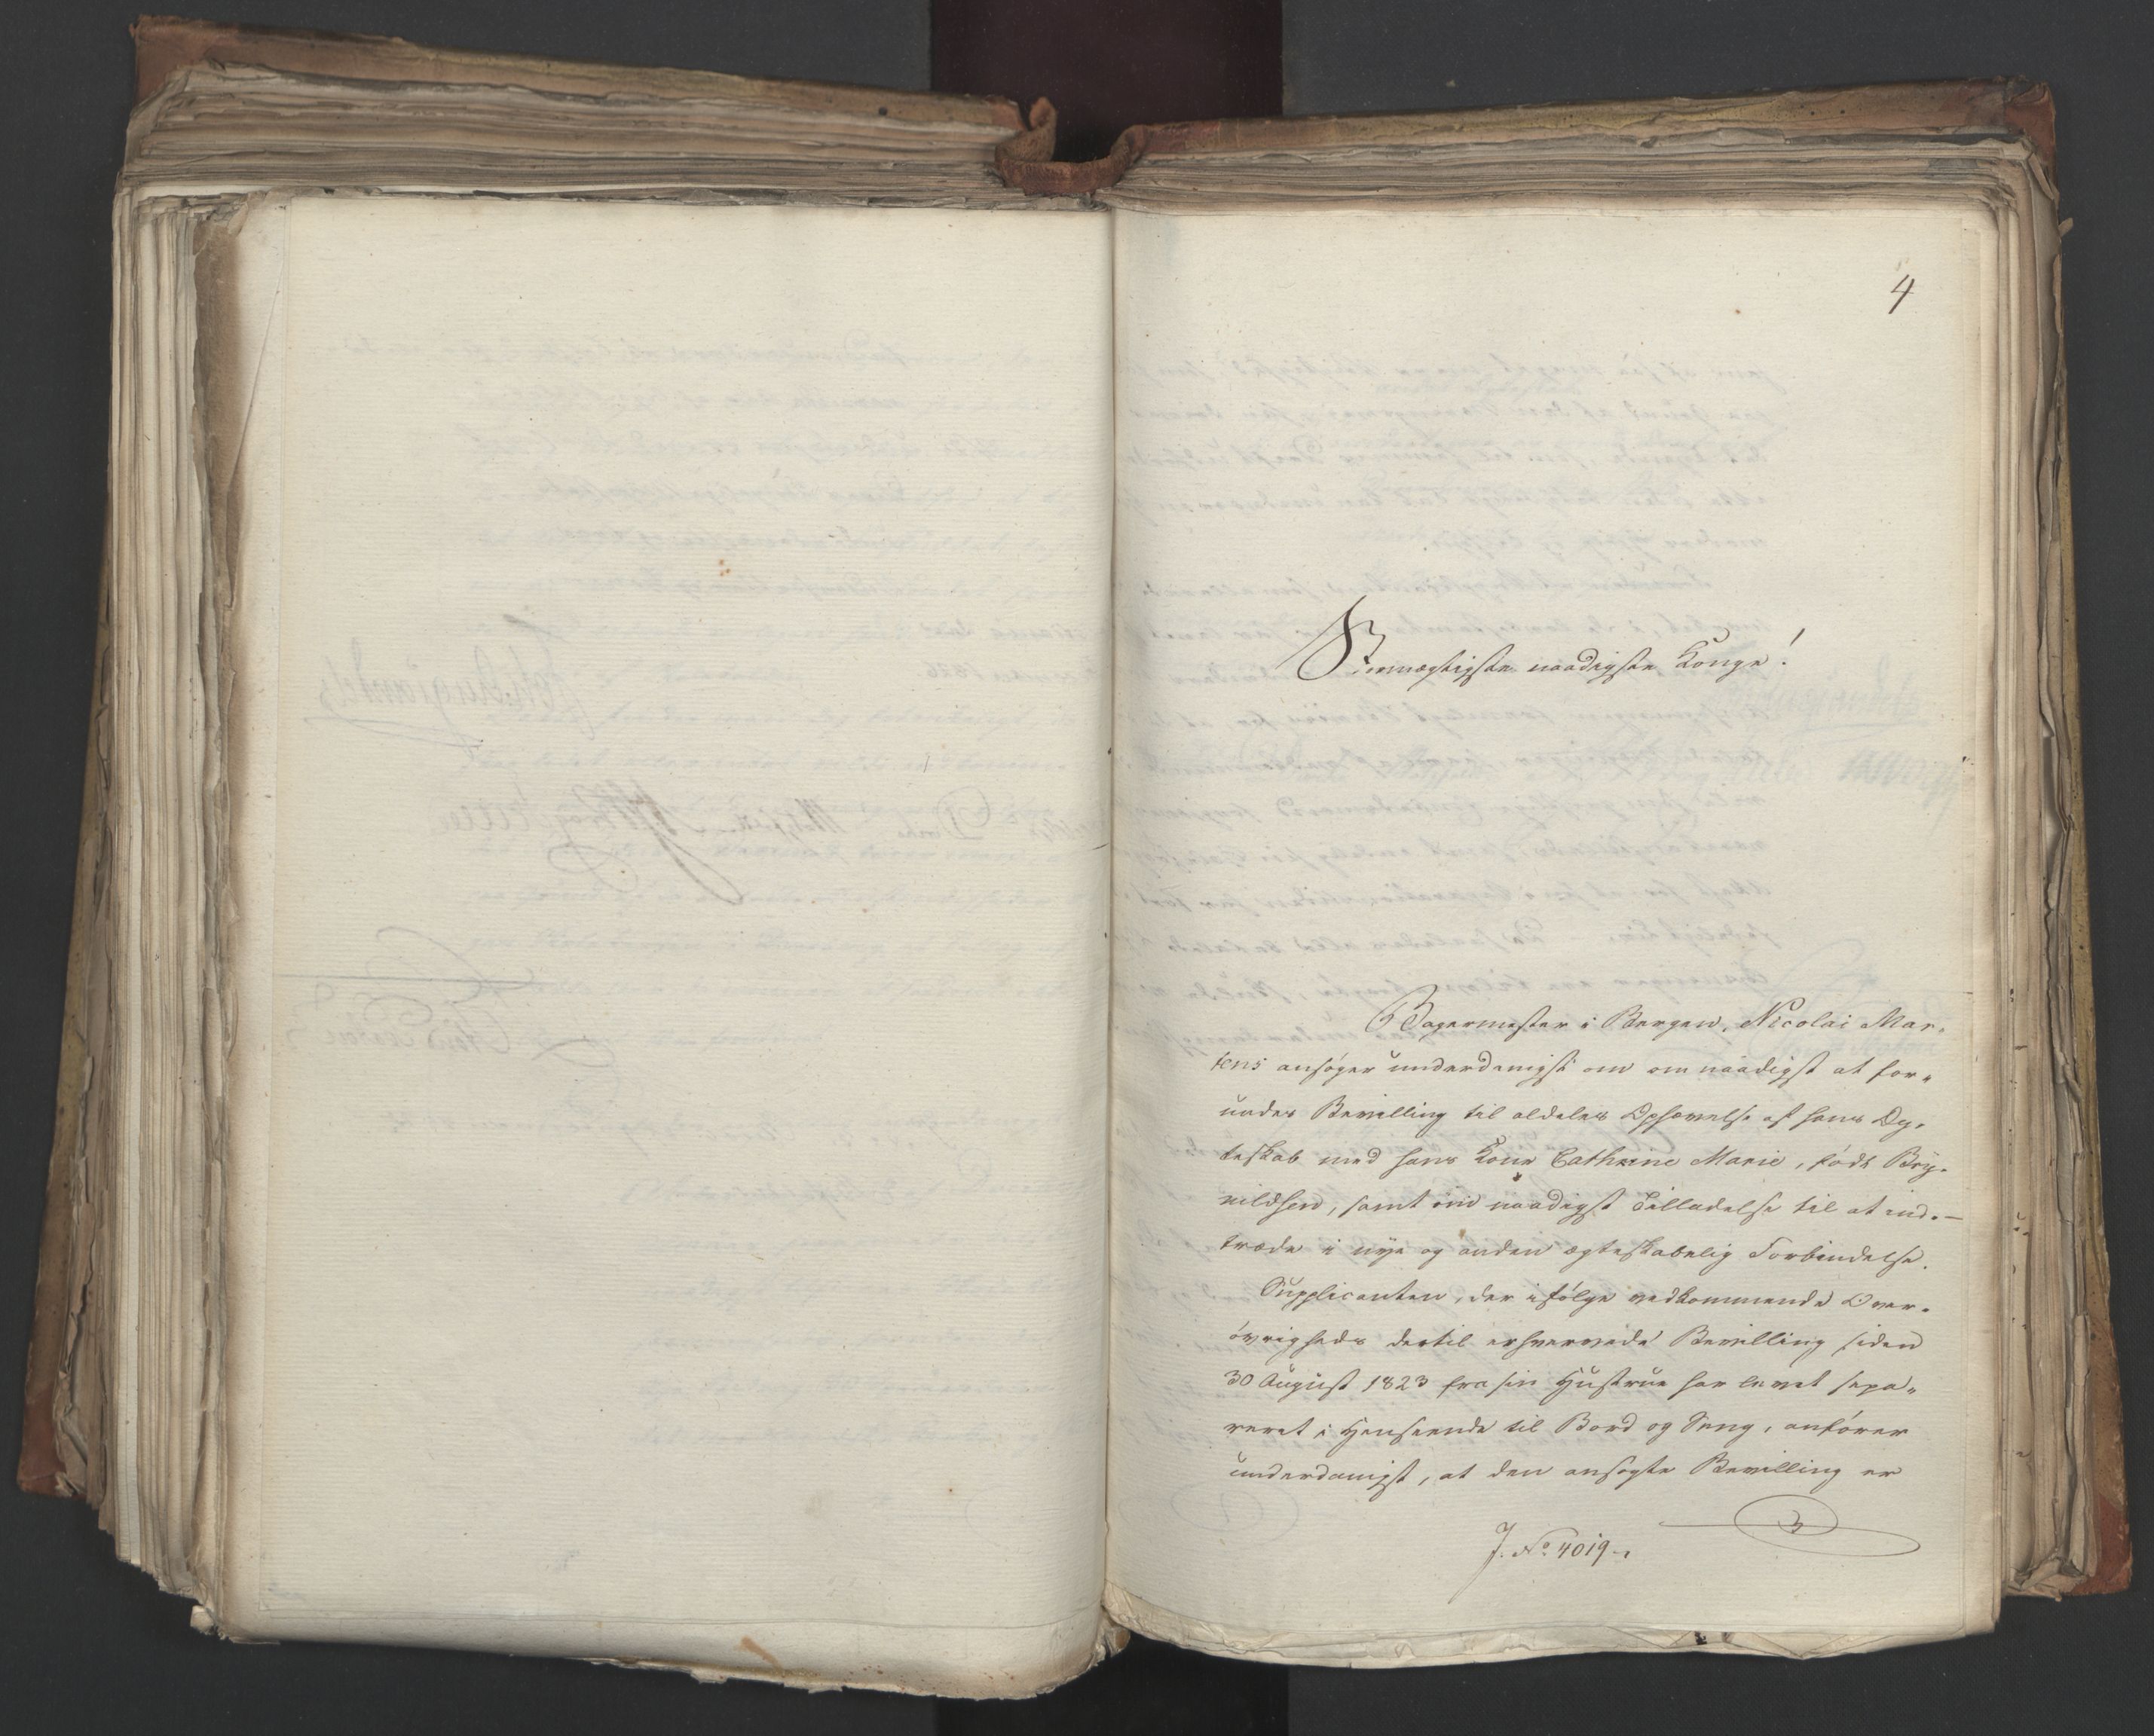 4
Stormægtigste naadigste Konge!
Bagermester i Bergen, Nicolai Mar-
tens ansøger underdanigst om om naadigst at for-
undes Bevilling til aldeles Ophævelse af hans Æg-
teskab med hans Kone Cathrine Marie, født Bry-
nildsen, samt om naadigst Tilladelse til at ind-
træde i nye og anden ægteskabelig Forbindelse.
Supplicanten, der ifølge vedkommende Over-
øvrigheds dertil erhvervede Bevilling siden
30 August 1823 fra sin Hustrue har levet sepa-
reret i Henseende til Bord og Seng, anfører
underdanigst, at den ansøgte Bevilling er
J. No. 4019